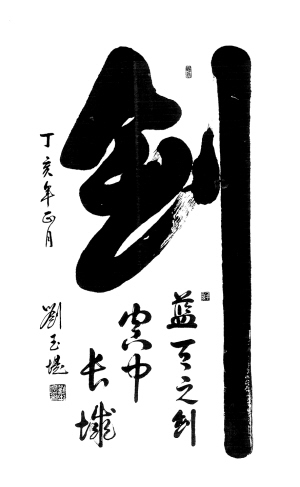 剑
蓝天之剑
空中
长城
丁亥年正月
劉玉堤